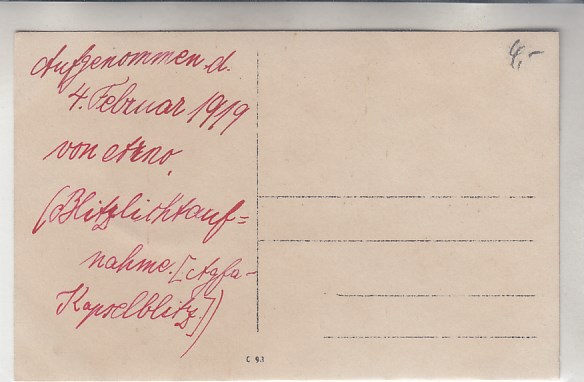 Aufgenommen d.
4. Februar 1919
von Arno.
(Blitzlichtauf=
nahme. [Agfa-
Kapselblitz.])
4,-
C 93